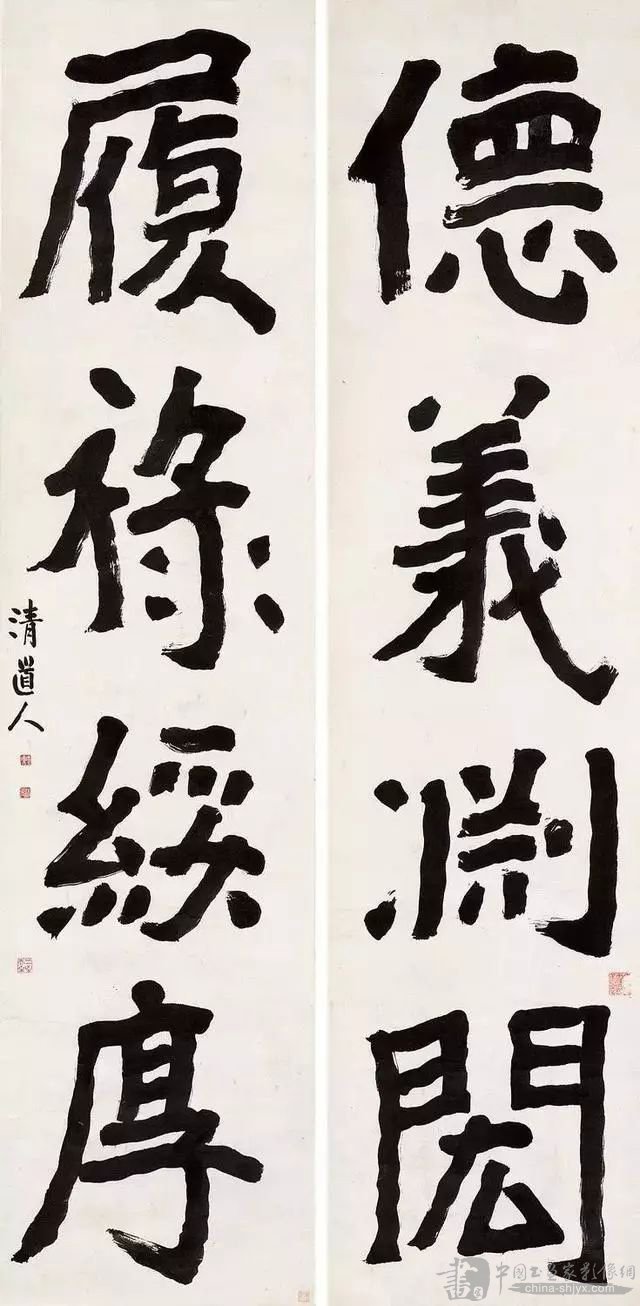 德義淵閎
履祿綏厚
清道人
中國书画家影像網
china-shjyx.com